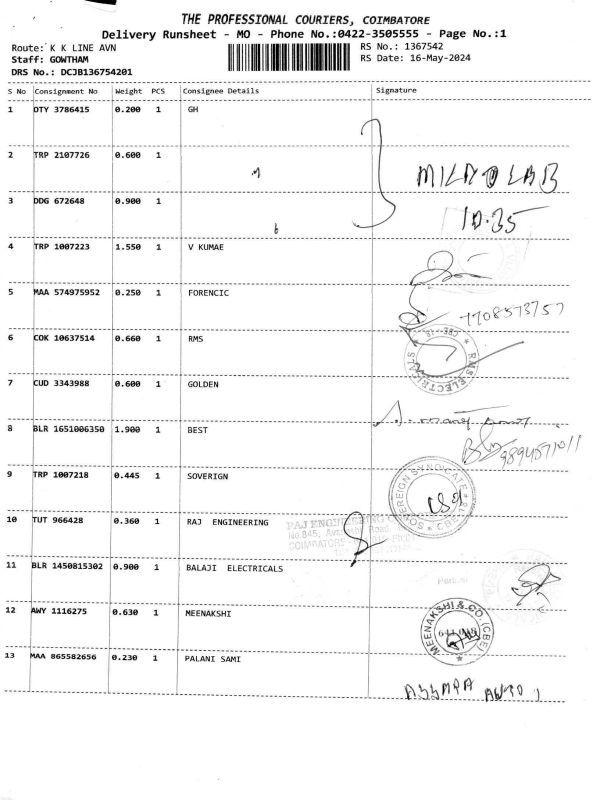 THE PROFESSIONAL COURIERS, COIMBATORE
Delivery Runsheet - MO - Phone No.:0422-3505555 - Page No.:1
Route: K K LINE AVN
RS No.: 1367542
Staff: GOWTHAM
RS Date: 16-May-2024
DRS No.: DCJB136754201
S No Consignment No Weight PCS Consignee Details Signature
1 DTY 3786415 0.200 1 GH
2 TRP 2107726 0.600 1
MICRO LAB
3 DDG 672648 0.900 1
10.35
4 TRP 1007223 1.550 1 V KUMAE
5 MAA 574975952 0.250 1 FORENCIC
7708573757
6 COK 10637514 0.660 1 RMS
RMS ELECTRICAL CBE-18
7 CUD 3343988 0.600 1 GOLDEN
8 BLR 1651006350 1.900 1 BEST
9 TRP 1007218 0.445 1 SOVERIGN
SOVEREIGN SYNDICATE CBE
10 TUT 966428 0.360 1 RAJ ENGINEERING
RAJ ENGINEERING
11 BLR 1450815302 0.900 1 BALAJI ELECTRICALS
12 AWY 1116275 0.630 1 MEENAKSHI
MEENAKSHI & CO (CBE)
13 MAA 865582656 0.230 1 PALANI SAMI